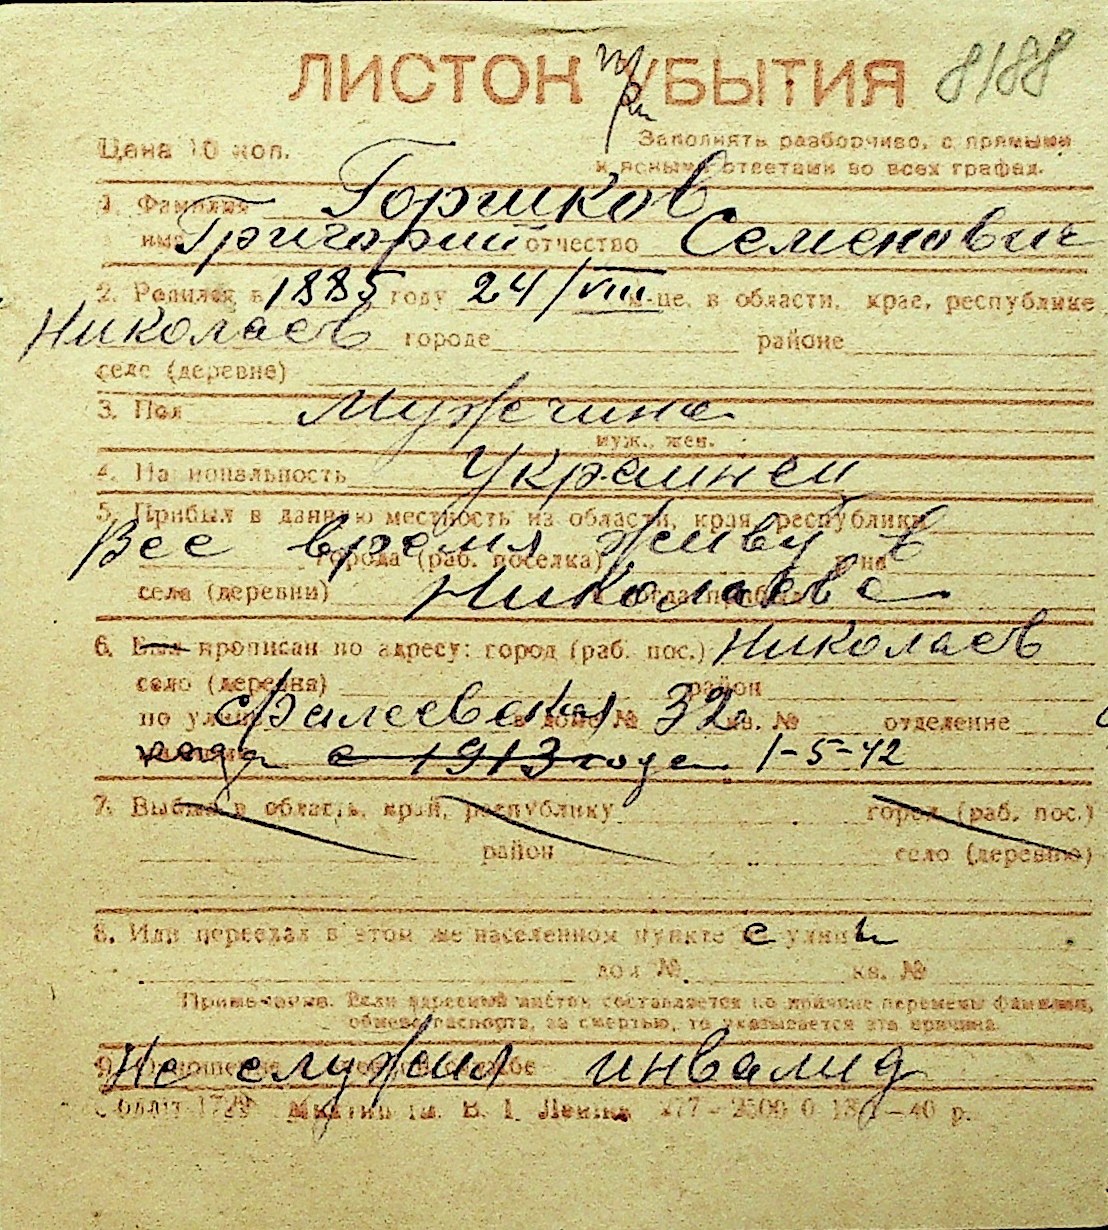 ЛИСТОК УБЫТИЯ 8188
Цена 10 коп. Заполнять разборчиво, с прямыми
и ясными ответами во всех графах.
1. Фамилия Горшков
имя Григорий отчество Семенович
2. Родился в 1885 году 24/VIII м-це, в области, крае, республике
Николаев городе районе
селе (деревне)
3. Пол Мужчина
муж., жен.
4. Национальность Украинец
5. Прибыл в данную местность из области, края, республики
Все время живу в
города (раб. поселка) района
села (деревни) Николаеве
6. Был прописан по адресу: город (раб. пос.) Николаев
село (деревня) район
по улице Фалеевская в доме № 32 кв. № отделение
с 1913 года 1-5-42
7. Выбыл в область, край, республику город (раб. пос.)
район село (деревню)
8. Или переехал в этом же населенном пункте с улицы
дом № кв. №
Примечание. Если адресный листок составляется по причине перемены фамилии,
обмена паспорта, за смертью, то указывается эта причина.
9. Не служил инвалид
Облліт 1729 В. І. Леніна 277—2500 0 40 р.